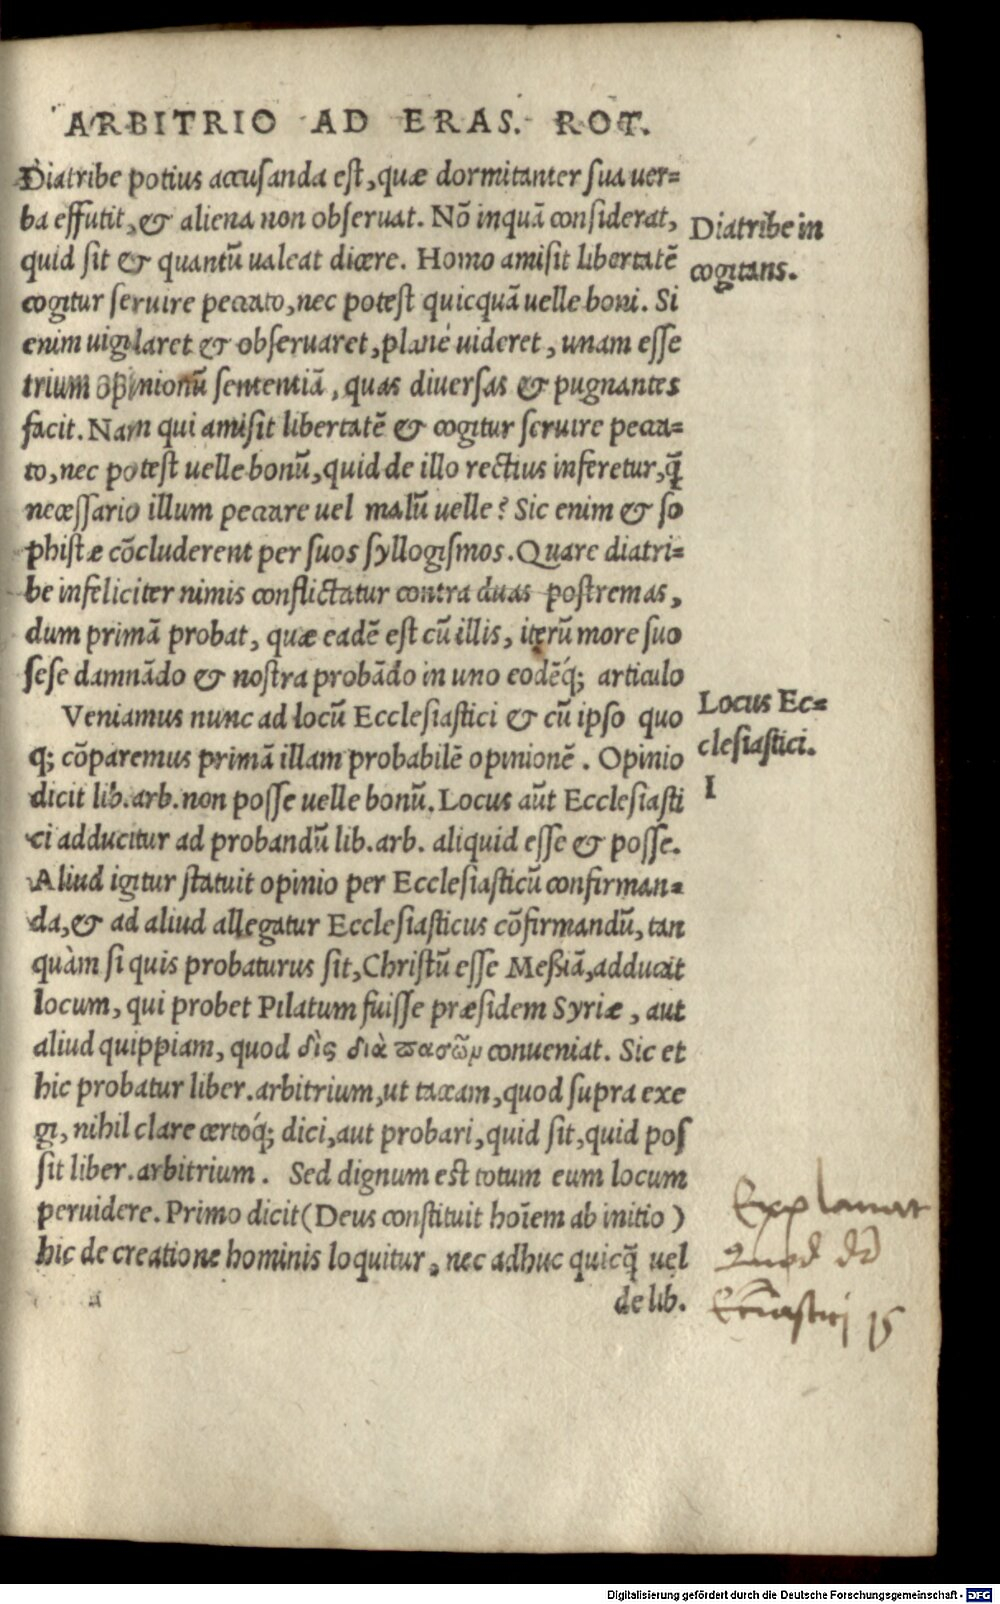 ARBITRIO AD ERAS. ROT.
Diatribe potius accusanda est, quæ dormitanter sua uer=
ba effutit, & aliena non obseruat. Nō inquā considerat,
quid sit & quantū ualeat dicere. Homo amisit libertatē
cogitur seruire peccato, nec potest quicquā uelle boni. Si
enim uigilaret & obseruaret, planè uideret, unam esse
trium opinionū sententiā, quas diuersas & pugnantes
facit. Nam qui amisit libertatē & cogitur seruire pecca=
to, nec potest uelle bonū, quid de illo rectius inferetur, q̃
necessario illum peccare uel malū uelle? Sic enim & so
phistæ cōcluderent per suos syllogismos. Quare diatri=
be infeliciter nimis conflictatur contra duas postremas,
dum primā probat, quæ eadē est cū illis, iterū more suo
sese damnādo & nostra probādo in uno eodēq́; articulo
Veniamus nunc ad locū Ecclesiastici & cū ipso quo
q; cōparemus primā illam probabilē opinionē. Opinio
dicit lib. arb. non posse uelle bonū. Locus aūt Ecclesiasti
ci adducitur ad probandū lib. arb. aliquid esse & posse.
Aliud igitur statuit opinio per Ecclesiasticū confirman=
da, & ad aliud allegatur Ecclesiasticus cōfirmandū, tan
quàm si quis probaturus sit, Christū esse Meßiā, adducat
locum, qui probet Pilatum fuisse præsidem Syriæ, aut
aliud quippiam, quod δὶς διὰ πασῶν conueniat. Sic et
hic probatur liber. arbitrium, ut taceam, quod supra exe
gi, nihil clare certoq́; dici, aut probari, quid sit, quid pos
sit liber. arbitrium. Sed dignum est totum eum locum
peruidere. Primo dicit (Deus constituit hoīem ab initio)
hic de creatione hominis loquitur, nec adhuc quicq̃ uel
de lib.
Diatribe in
cogitans.
Locus Ec=
clesiastici.
I
Explanat
Quod
15